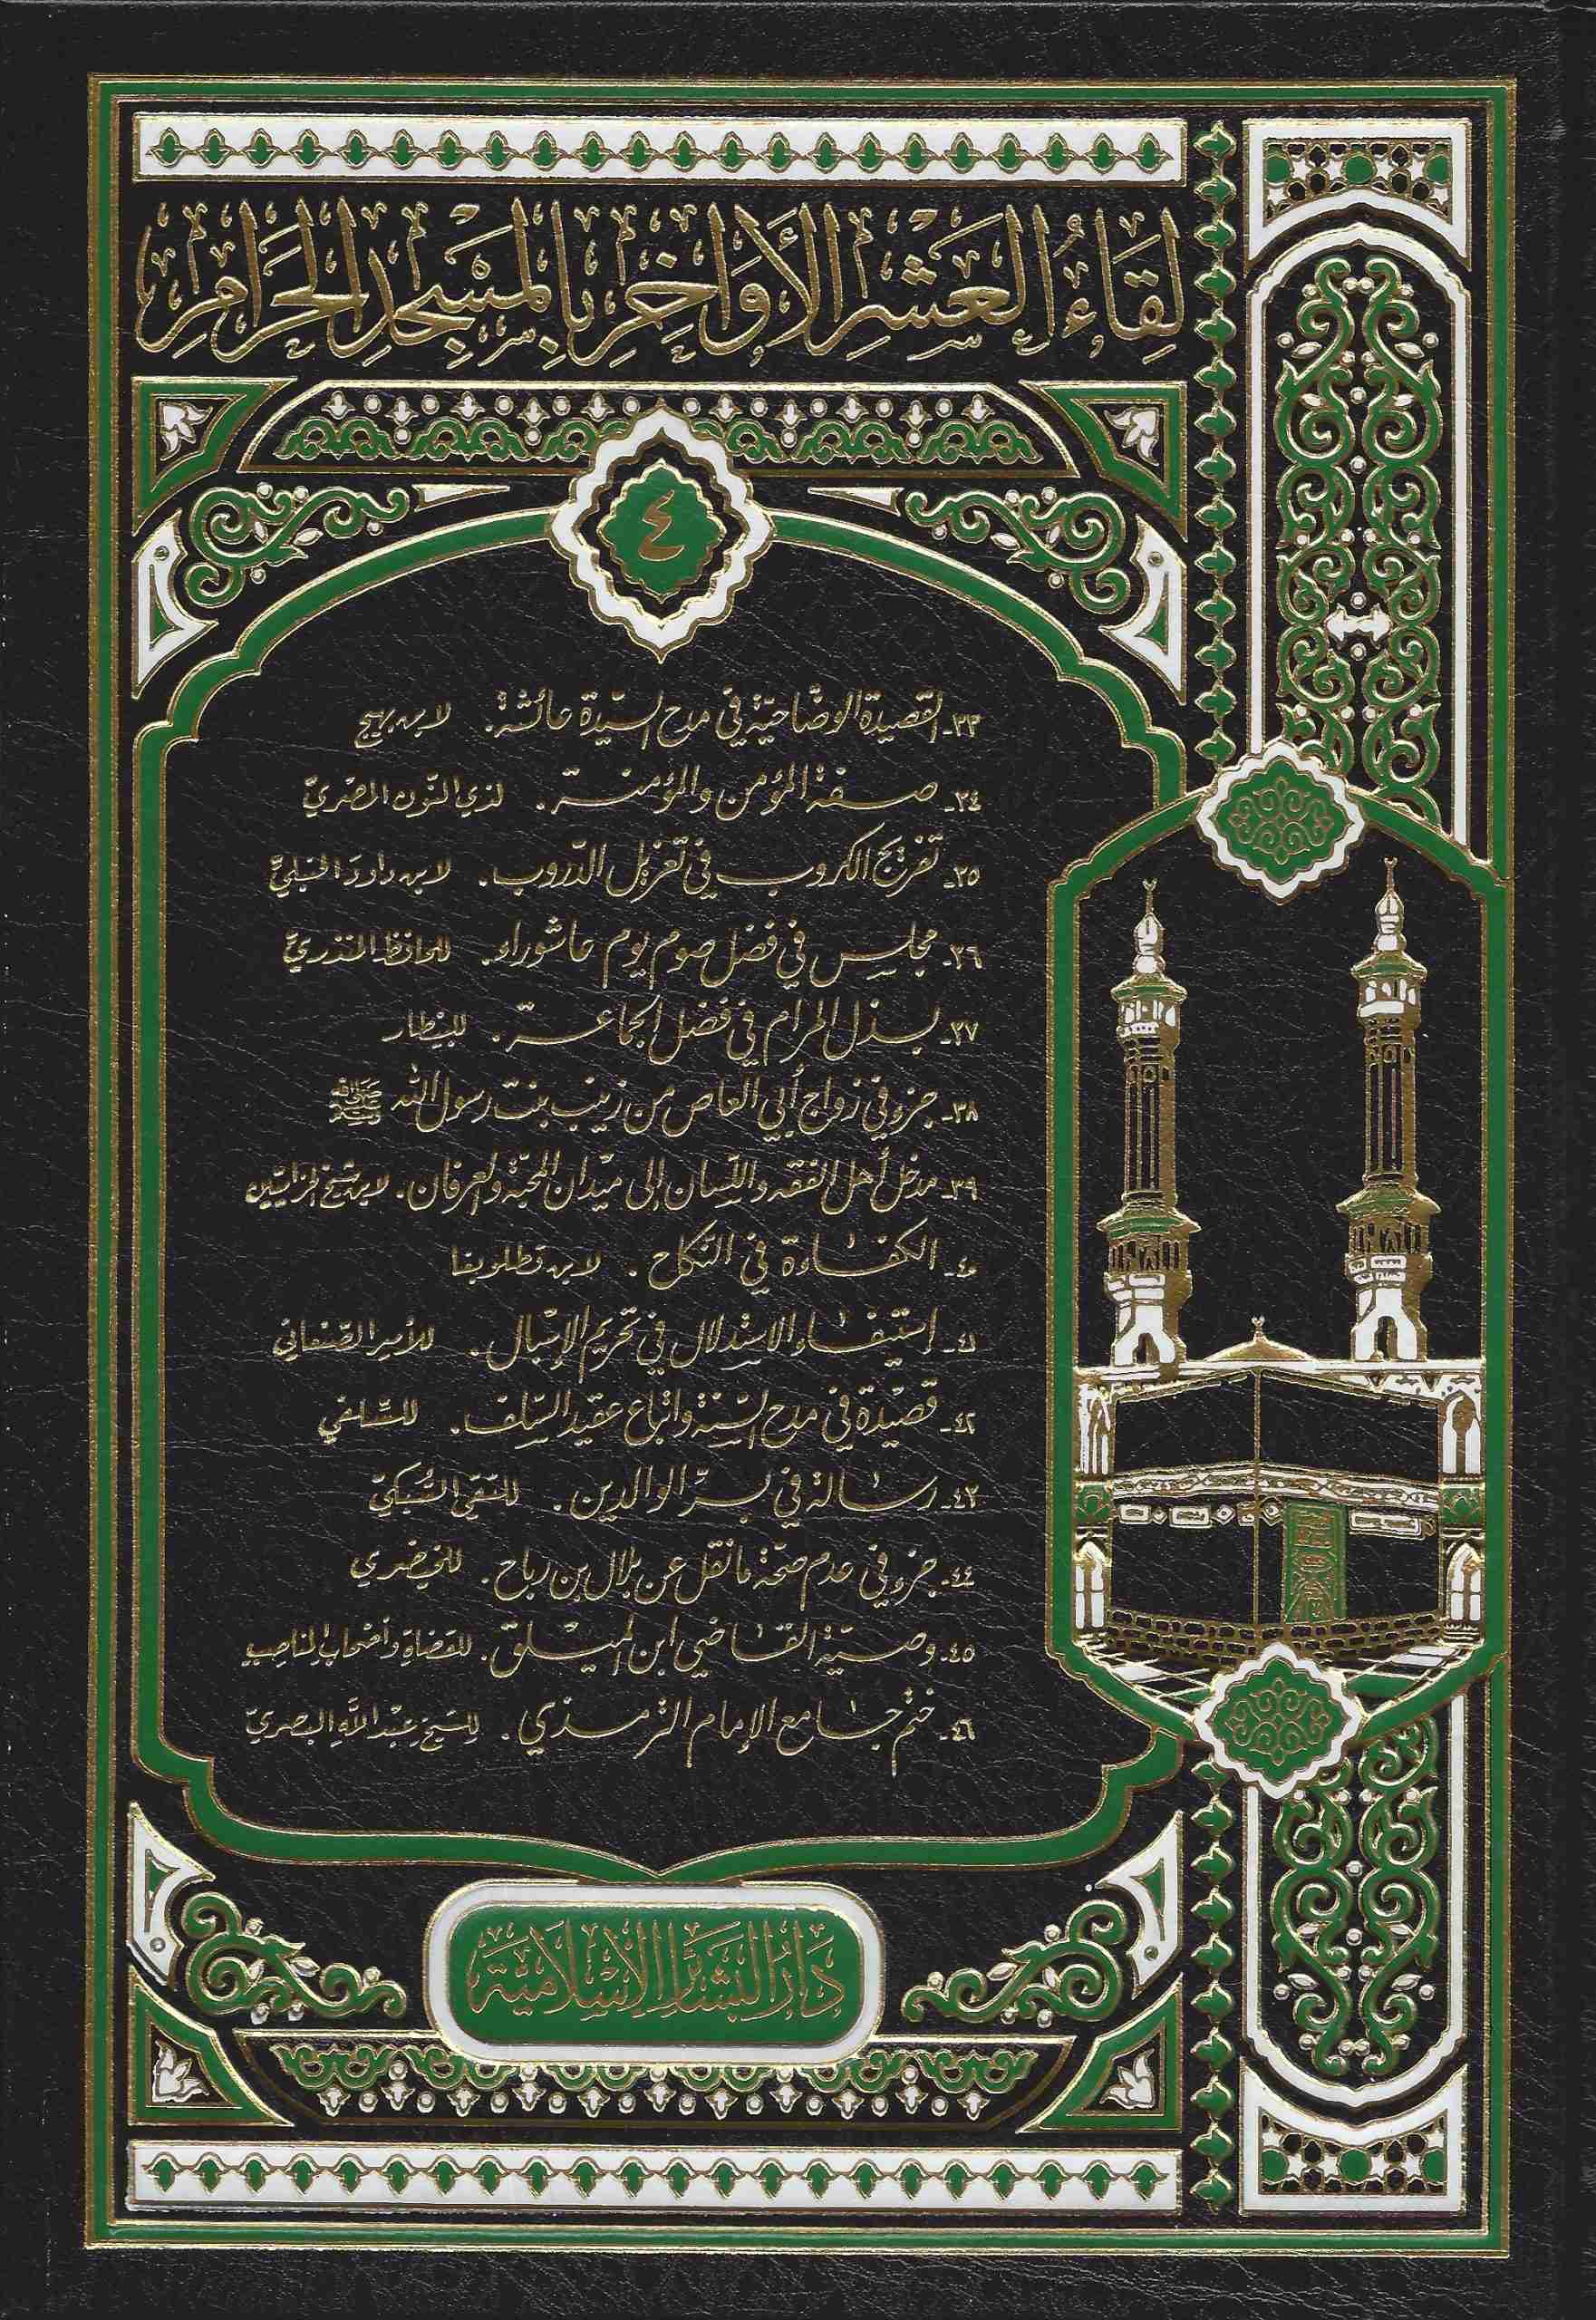 لِقَاءُ العَشْرِ الأَوَاخِرِ بِالمَسْجِدِ الحَرَامِ
٤
٣٣- القصيدة الوضّاحيّة في مدح السيّدة عائشة. لابن بهيج
٣٤- صفة المؤمن والمؤمنة. لذي النّون المصريّ
٣٥- تفريج الكروب في تعزيل الدّروب. لابن داود الحنبليّ
٣٦- مجلس في فضل صوم يوم عاشوراء. للحافظ المنذريّ
٣٧- بذل المرام في فضل الجماعة. للبيطار
٣٨- جزء في زواج أبي العاص من زينب بنت رسول الله ﷺ
٣٩- مدخل أهل الفقه واللّسان إلى ميدان المحبّة والعرفان. لابن شيخ الحزاميّين
٤٠- الكفاءة في النّكاح. لابن قطلوبغا
٤١- إستيفاء الاستدلال في تحريم الإسبال. للأمير الصّنعاني
٤٢- قصيدة في مدح السّنة واتباع عقيد السّلف. للسِّلَفي
٤٣- رسالة في برّ الوالدين. للتّقيّ السُّبكيّ
٤٤- جزء في عدم صحّة ما نقل عن بلال بن رباح. للخيضري
٤٥- وصيّة القاضي ابن الميلق. للقضاة وأصحاب المناصب
٤٦- ختم جامع الإمام الترمذي. للشيخ عبد الله البصريّ
دَارُ البَشَائِرِ الإِسْلَامِيَّة